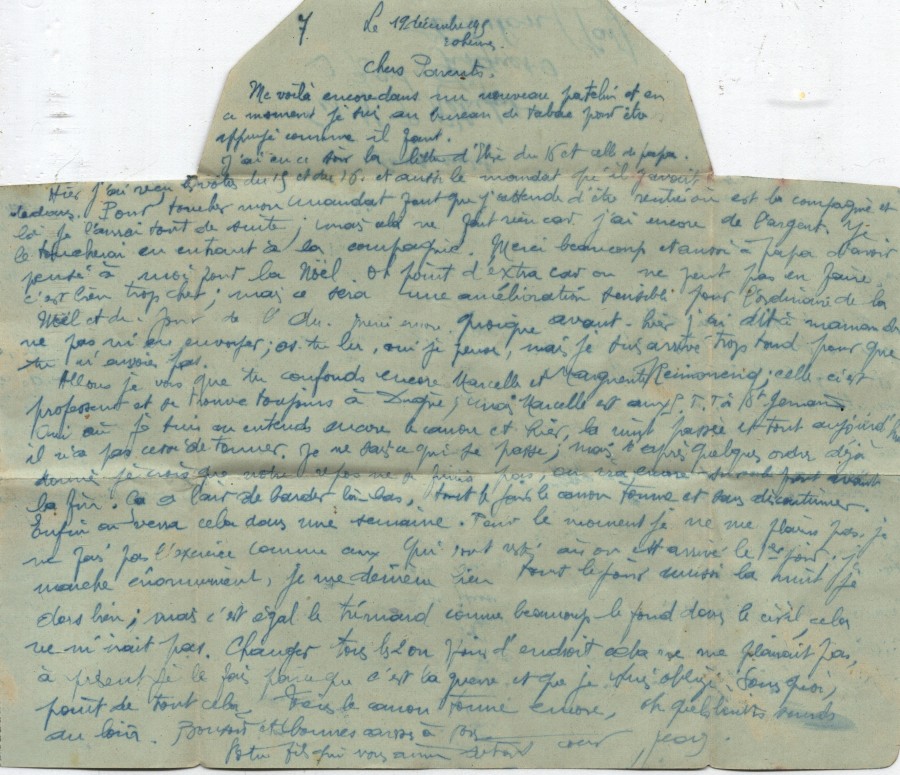 7 Le 19 décembre 1915
Chers Parents.
Me voilà encore dans un nouveau patelin et en
ce moment je suis au bureau de tabac pour être
appuyé comme il faut.
J'ai eu ce soir la lettre du 16 et celle de papa.
Hier j'ai reçu du 15 et du 16. et aussi le mandat qu'il y avait
dedans. Pour toucher mon mandat faut que j'attende d'être rentré où est la compagnie et
là je l'aurai tout de suite ; mais cela ne fait rien car j'ai encore de l'argent,
le toucherai en entrant à la compagnie. Merci beaucoup et aussi à papa d'avoir
pensé à moi pour la Noël. point d'extra car on ne peut pas en faire
c'est bien trop cher ; mais ce sera une amélioration sensible pour l'ordinaire de la
Noël et du Jour de l'An. merci encore. quoique avant-hier j'ai dit à maman de
ne pas m'en envoyer ; as-tu lu, oui je pense, mais je suis arrivé trop tard pour que
tu n'envoies pas.
Allons je vois que tu confonds encore Marcelle et Marguerite celle-ci est
professeur et se trouve toujours à mais Marcelle est aux P.T.T à St Germain
Ici où je suis on entends encore le canon et hier, la nuit passée et tout aujourd'hui
il n'a pas cessé de tonner. Je ne sais ce qui se passe ; mais d'après quelques ordres déjà
donnés je crois que notre repos ne se finira pas, on ira encore sur le front avant
la fin. Ça a l'air de barder là-bas, tout le jour le canon tonne et sans discontinuer.
Enfin on verra cela dans une semaine. Pour le moment je ne me plains pas, je
ne fais pas l'exercice comme ceux qui sont restés où on est arrivé le 1er jour. je
marche énormément, je me démène bien tout le jour aussi la nuit je
dors bien ; mais c'est égal le trimard comme beaucoup le font dans le civil, cela
ne m'irait pas. Changer tous les 2 ou 3 jours d'endroit cela ne me plairait pas,
à présent je le fais parce que c'est la guerre et que je suis obligé. Sans quoi,
point de tout cela. le canon tonne encore, quels bruits sourds
au loin. Bonsoir et bonnes à
Votre fils qui vous aime de tout cœur